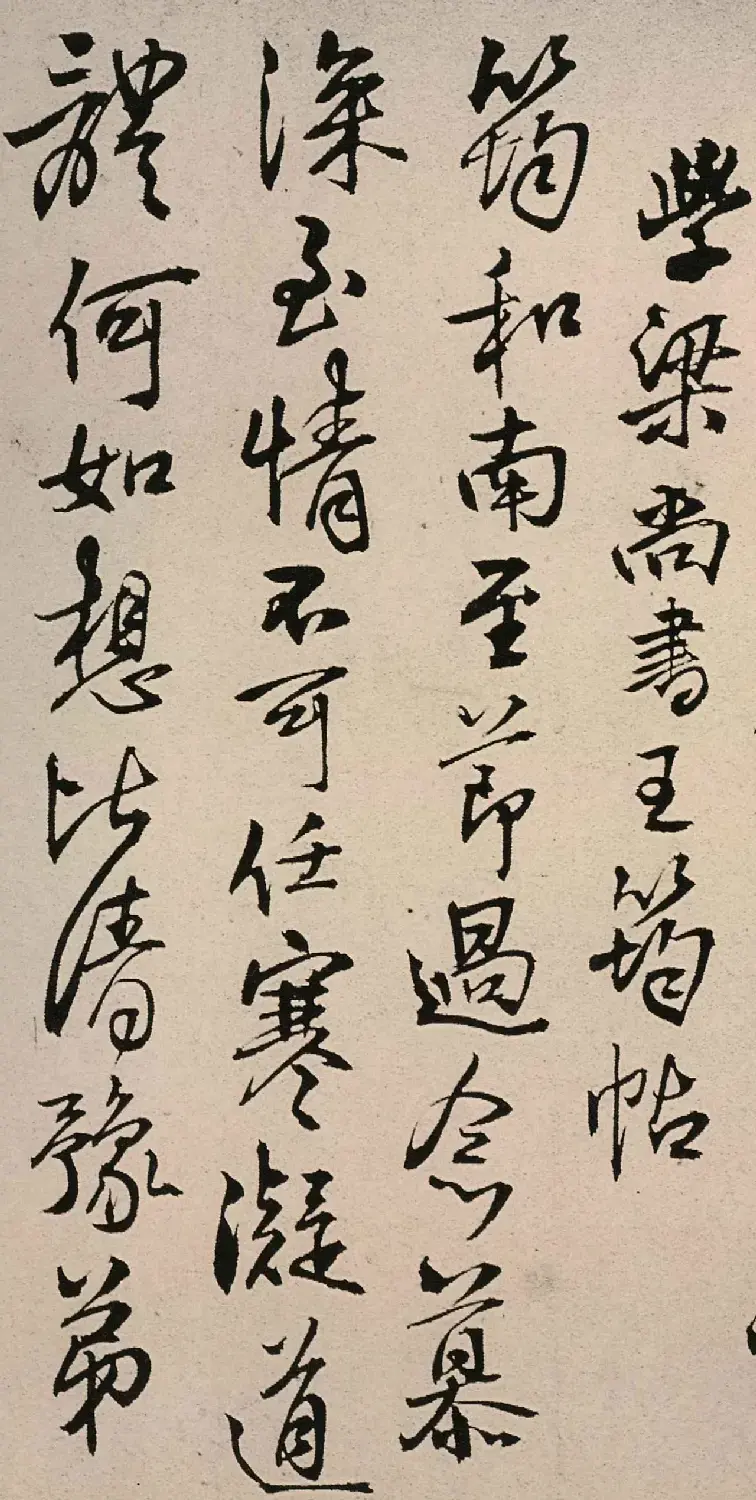 學梁尚書王筠帖
筠和南至節過念慕
深至情不可任寒凝道
體何如想比清豫弟